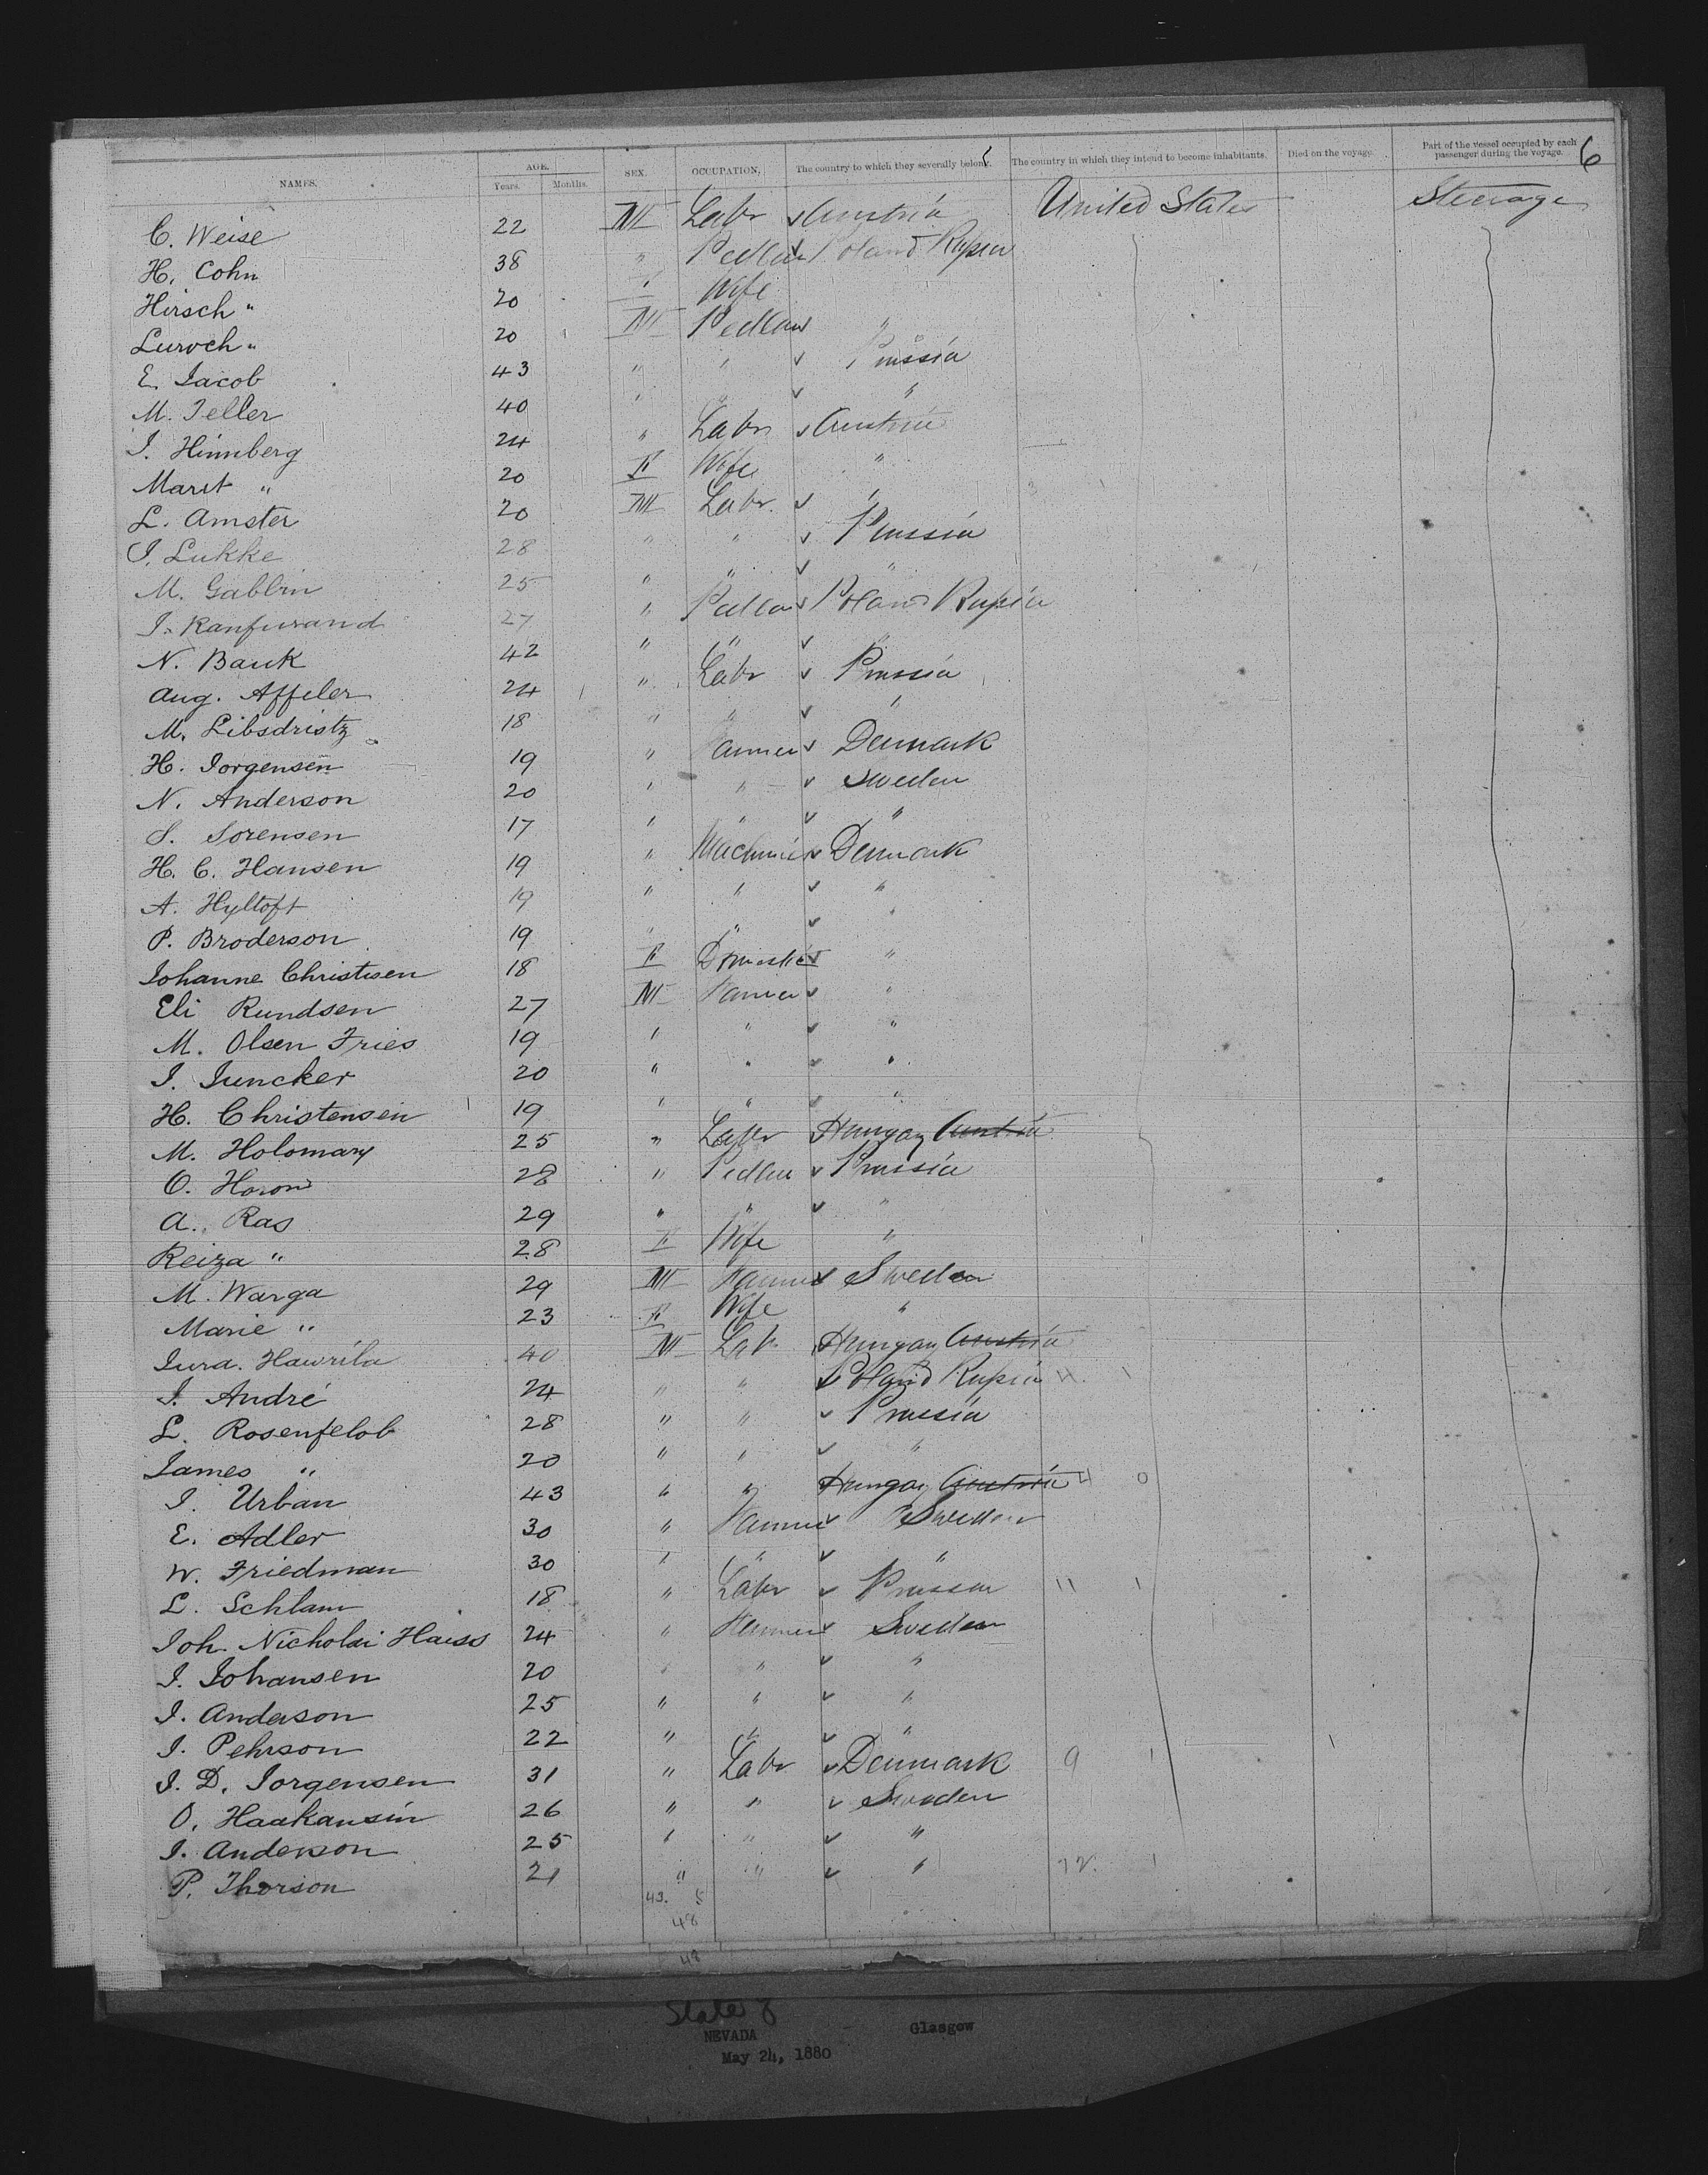 NAMES. AGE. Years. Months. SEX. OCCUPATION, The country to which they severally belong. The country in which they intend to become inhabitants. Died on the voyage. Part of the vessel occupied by each passenger during the voyage. 6
C. Weise 22 M Labr Austria United States Steerage
H. Cohn 38 " Pedlar Poland Russia
Hirsch " 20 F Wife
Luroch " 20 M Pedlar "
E. Jacob 43 " " Prussia
M. Teller 40 " " "
I. Himmberg 24 " Labr Austria
Maret " 20 F Wife "
L. Amster 20 M Labr. "
I. Lukke 28 " " Prussia
M. Gabbrin 25 " " "
I. Kanfurand 27 " Pedlar Poland Russia
N. Bauk 42 " " "
Aug. Affeler 24 " Labr Prussia
M. Libsdristz 18 " " "
H. Jorgensen 19 " Farmer Denmark
N. Anderson 20 " " Sweden
S. Sorensen 17 " " "
H. C. Hansen 19 " Denmark
A. Hyltoft 19 " " "
P. Broderson 19 " " "
Johanne Christisen 18 F Domestic "
Eli Rundsen 27 M Farmer "
M. Olsen Fries 19 " " "
I. Juncker 20 " " "
H. Christensen 19 " " "
M. Holomary 25 " Labr Hungary Austria
O. Horon 28 " Pedlar Prussia
A. Ras 29 " " "
Reiza " 28 F Wife "
M. Warga 29 M Farmer Sweden
Marie " 23 F Wife "
Jura. Hawrila 40 M Lab. Hungary Austria
I. André 24 " " Poland Russia 11. 1
L. Rosenfelob 28 " " Prussia
James " 20 " " "
I. Urban 43 " " Hungary Austria 4 0
E. Adler 30 " Farmer Sweden
W. Friedman 30 " " "
L. Schlam 18 " Labr Prussia 11 1
Joh. Nicholai Haiss 24 " Farmer Sweden
I. Johansen 20 " " "
I. Anderson 25 " " "
I. Pehrson 22 " " "
I. D. Jorgensen 31 " Labr Denmark 9 1
O. Haakansin 26 " " Sweden
I. Anderson 25 " " "
P. Thorson 21 " " " 12. 1
43. 5
48
48
State of
NEVADA Glasgow
May 24, 1880